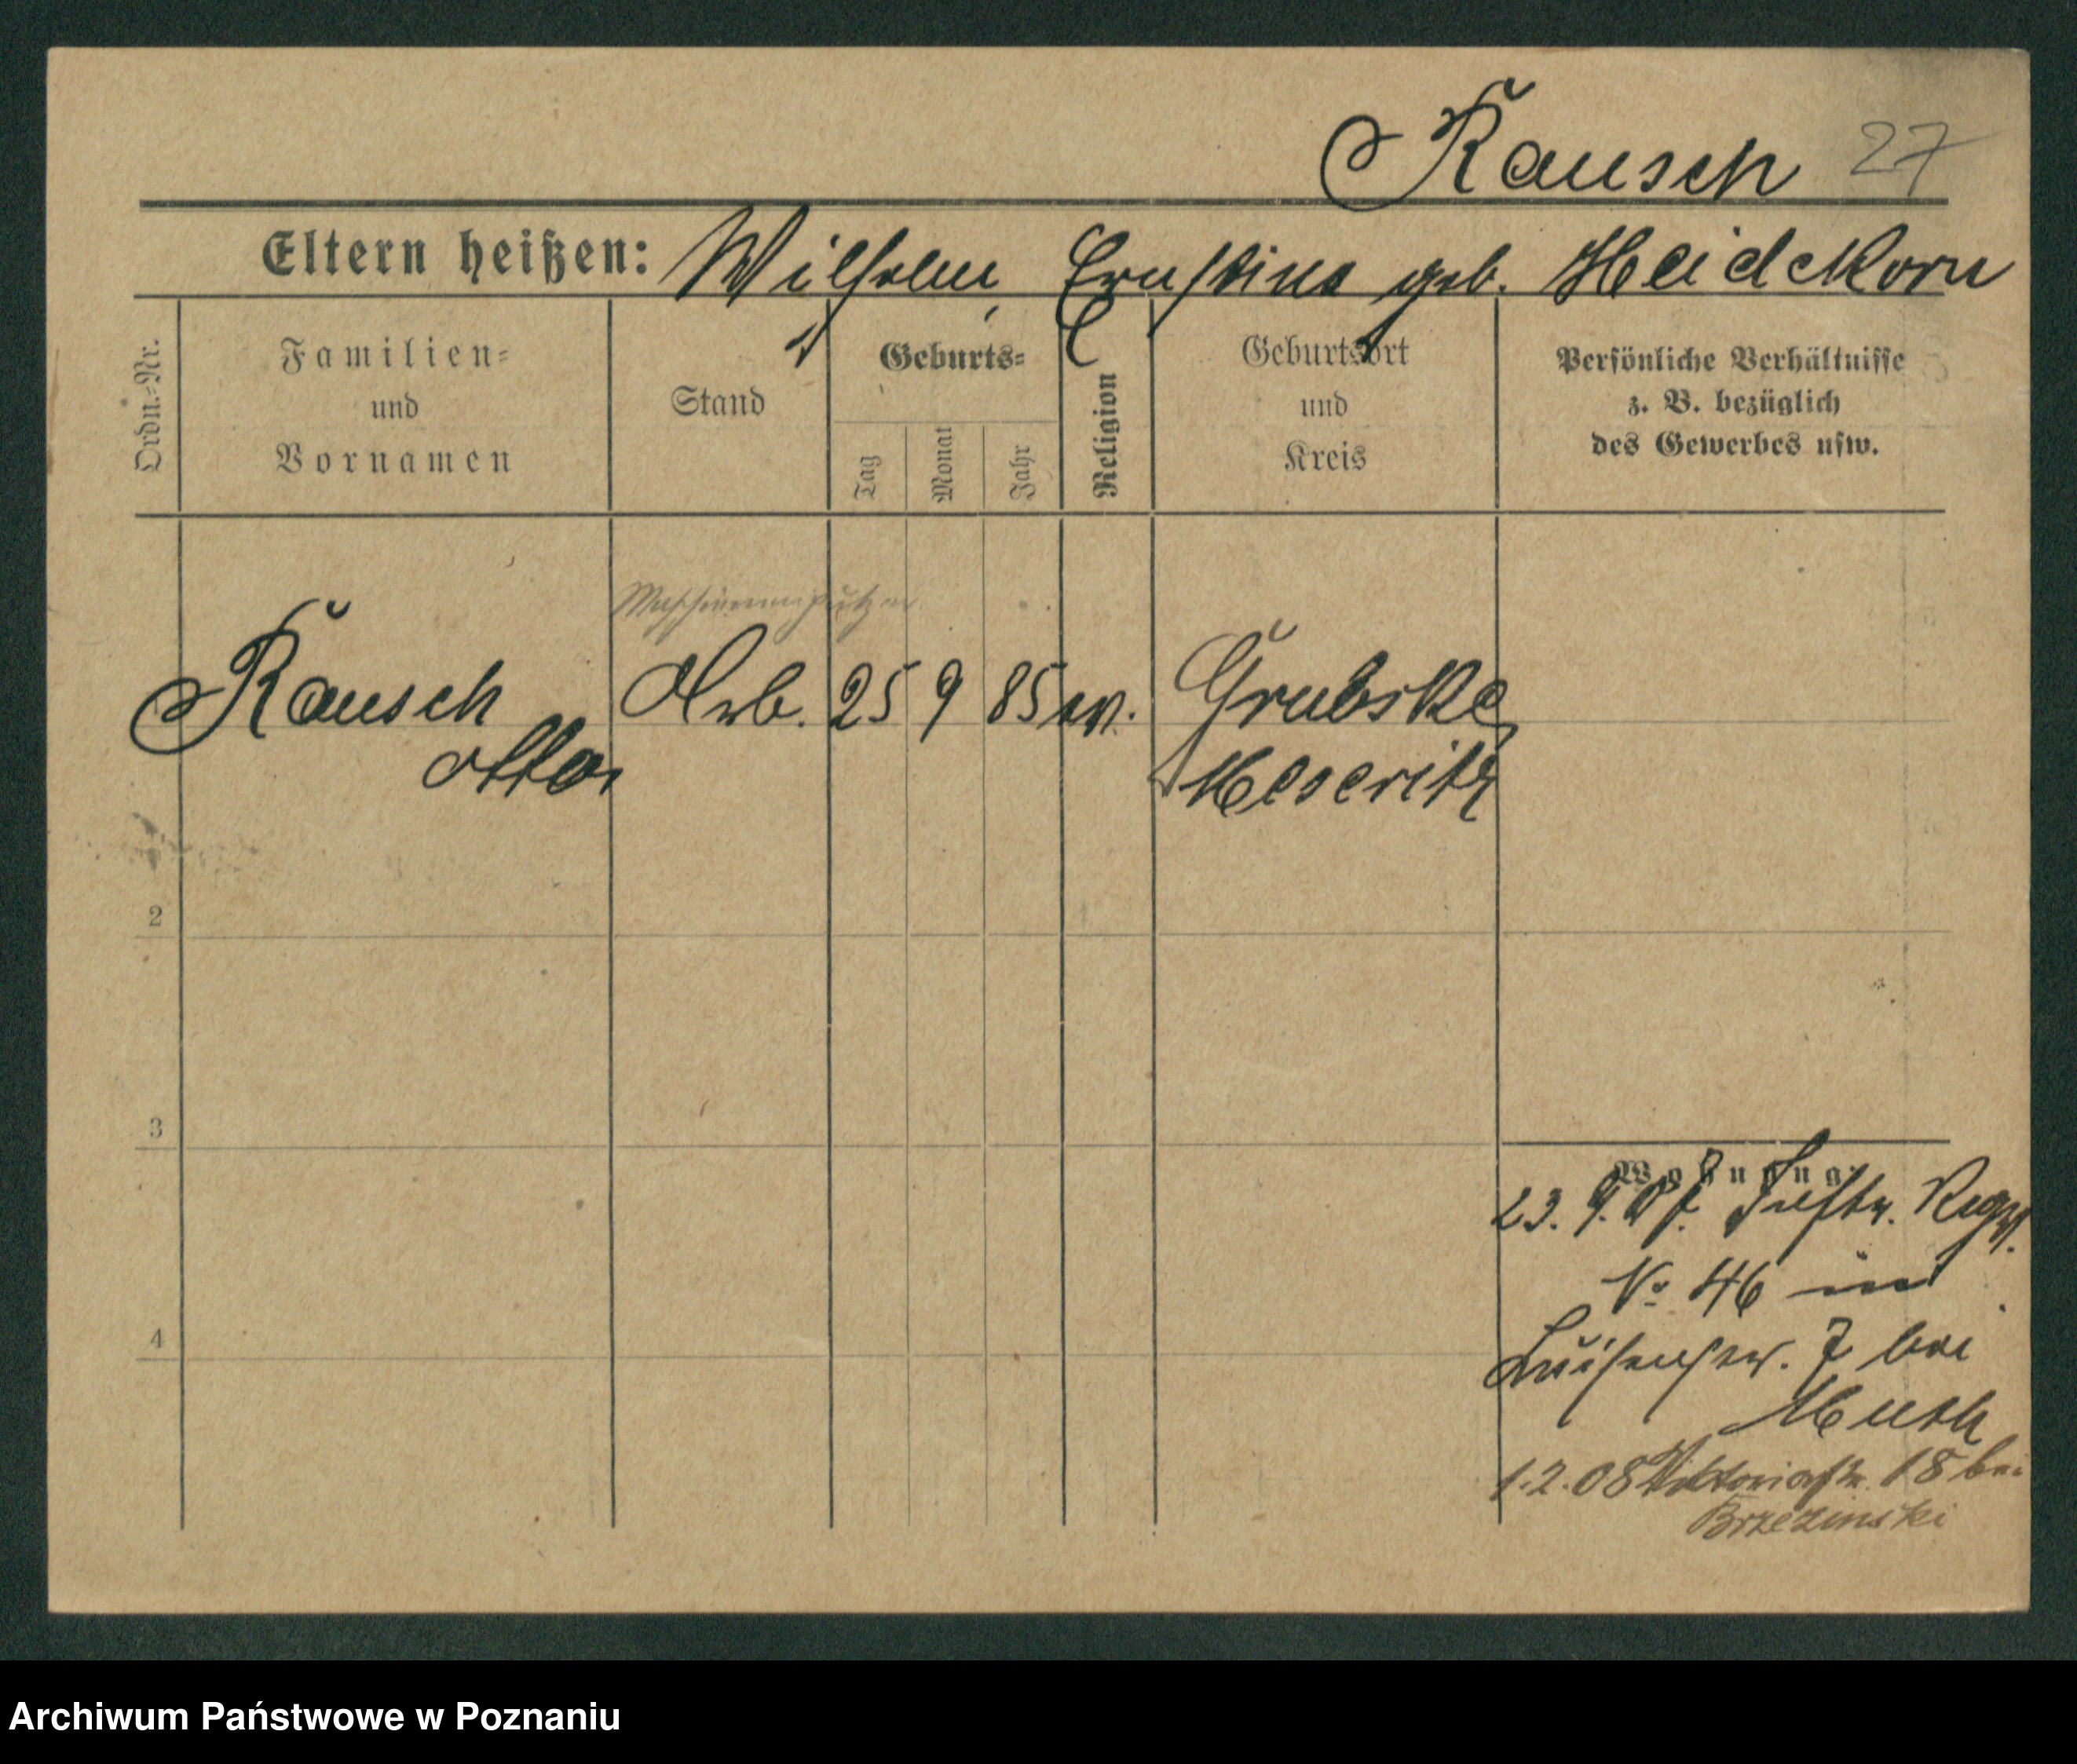 Rausch 27
Eltern heißen: Wilhelm, Ernstine geb. Heidekorn
Ordn.=Nr.
Familien=
und
Vornamen
Stand
Geburts=
Tag
Monat
Jahr
Religion
Geburtsort
und
Kreis
Persönliche Verhältnisse
z. B. bezüglich
des Gewerbes usw.
Maschinenputzer
Rausch Arb. 25 9 85 ev. Grubske
Otto Meseritz
2
3
4
Wohnung
23. 9. 07. Inftr. Regt.
No 46 in
Luisenstr. 7 bei
Muth
1.2.08 Viktoriastr. 18 bei
Brzezinski
Archiwum Państwowe w Poznaniu